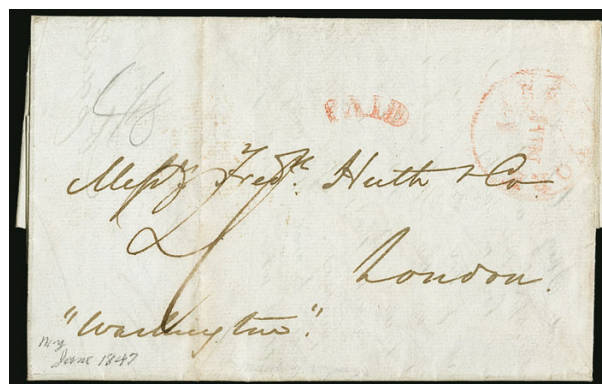 PAID
NEW YORK
Messrs Fredk. Huth & Co
London.
"Washington".
N.Y
June 1847